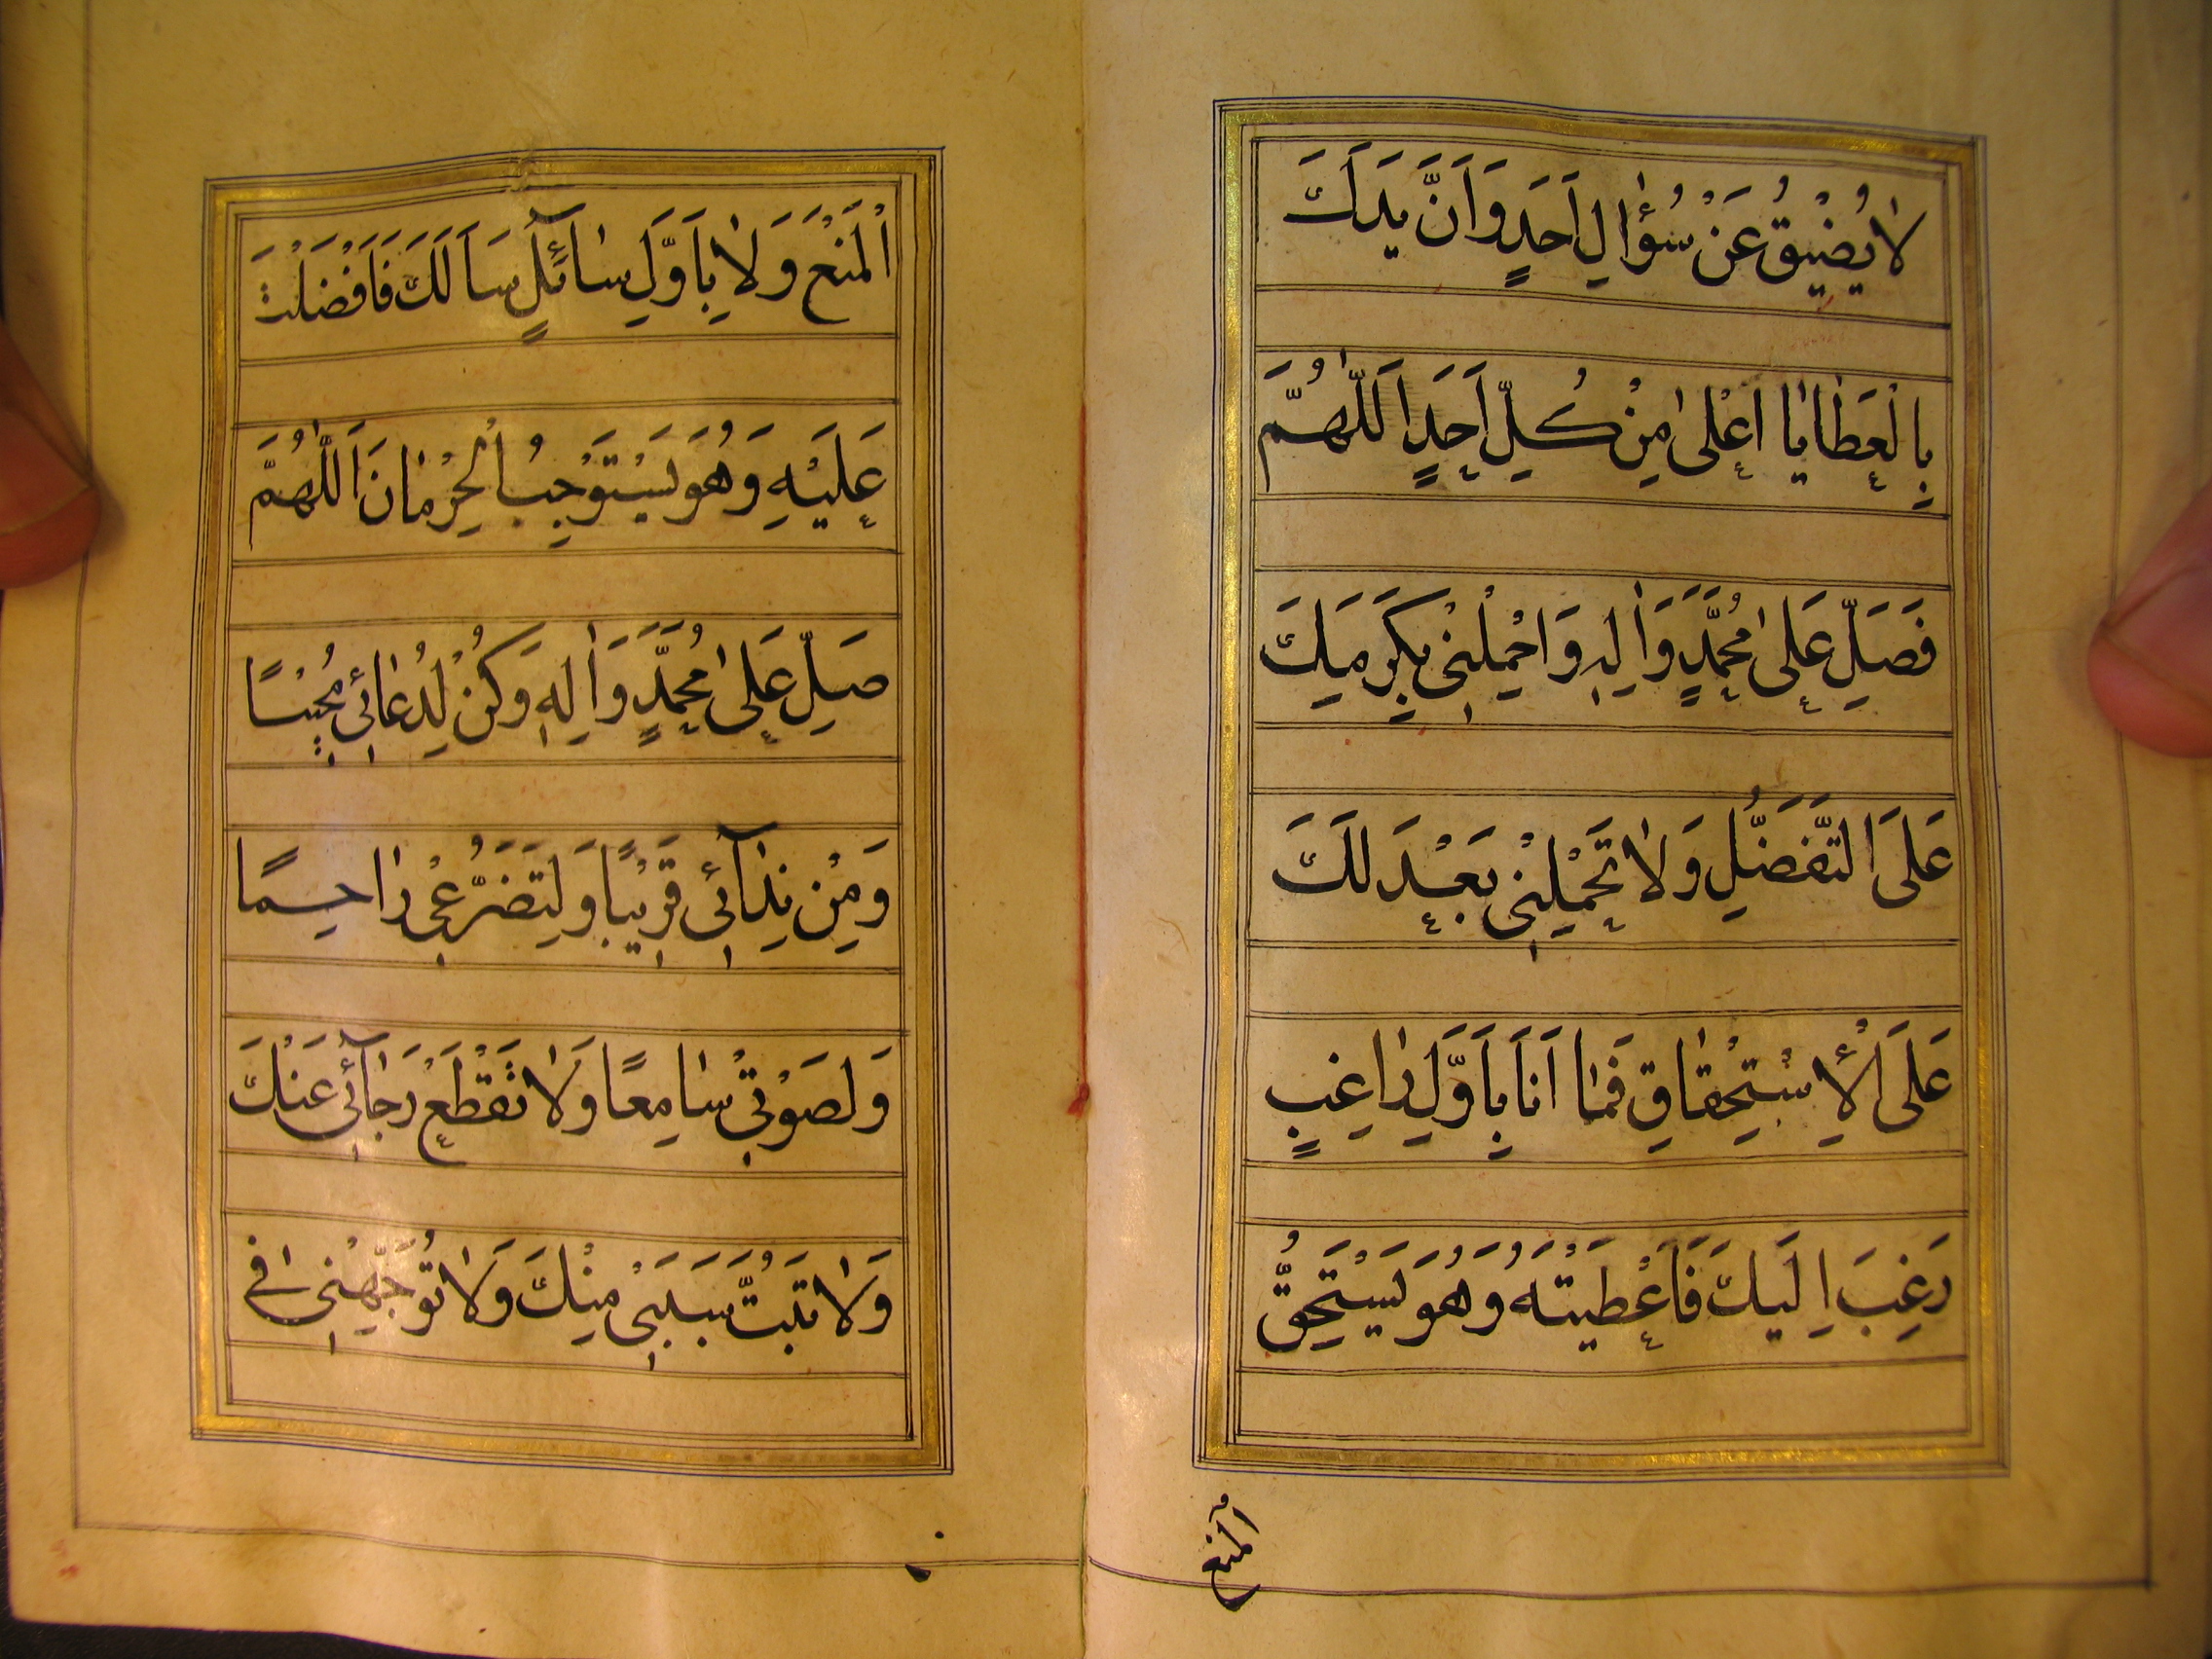 لَا يُضِيْقُ عَنْ سُؤٰالِ اَحَدٍ وَاَنَّ يَدَكَ
بِالْعَطٰايٰا اَعْلٰى مِنْ كُلِّ اَحَدٍ اَللّٰهُمَّ
فَصَلِّ عَلٰى مُحَمَّدٍ وَاٰلِهِ وَاحْمِلْنِيْ بِكَرَمِكَ
عَلَى التَّفَضُّلِ وَلٰا تَحْمِلْنِيْ بِعَدْلِكَ
عَلَى الْأِسْتِحْقٰاقِ فَمٰا اَنَا بِاَوَّلِ رٰاغِبٍ
رَغِبَ اِلَيْكَ فَاَعْطَيْتَهُ وَهُوَ يَسْتَحِقُّ
اَلْمَنْعَ
اَلْمَنْعَ وَلٰا بِاَوَّلِ سٰائِلٍ سَاَلَكَ فَاَفْضَلْتَ
عَلَيْهِ وَهُوَ يَسْتَوْجِبُ الْحِرْمٰانَ اَللّٰهُمَّ
صَلِّ عَلٰى مُحَمَّدٍ وَاٰلِهِ وَكُنْ لِدُعٰائِي مُجِيْبًا
وَمِنْ نِدٰآئِي قَرِيْبًا وَلِتَضَرُّعِيْ رٰاحِمًا
وَلِصَوْتِيْ سٰامِعًا وَلٰا تَقْطَعْ رَجٰآئِي عَنْكَ
وَلٰا تَبُتَّ سَبَبِيْ مِنْكَ وَلٰا تُوَجِّهْنِيْ فِي